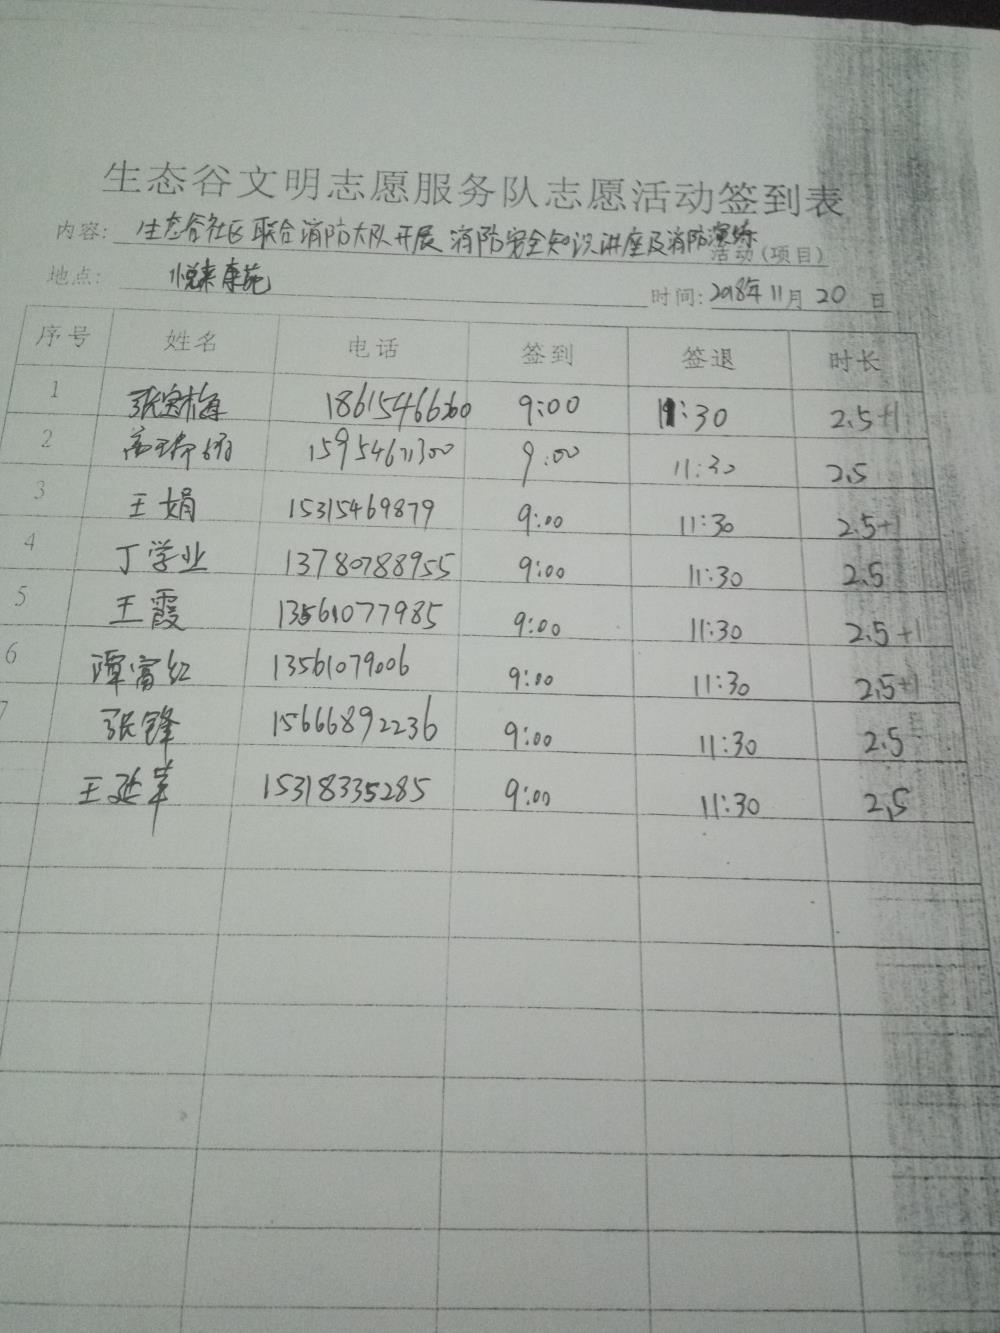 生态谷文明志愿服务队志愿活动签到表
内容: 生态谷社区联合消防大队开展消防安全知识讲座及消防演练 活动(项目)
地点: 悦来康苑 时间: 2018年11月20日
序号 姓名 电话 签到 签退 时长
1 张宝梅 18615466260 9:00 11:30 2.5+1
2 15954671300 9:00 11:30 2.5
3 王娟 15315469879 9:00 11:30 2.5+1
4 丁学业 13780788955 9:00 11:30 2.5
5 王霞 13561077985 9:00 11:30 2.5+1
6 谭富红 13561079006 9:00 11:30 2.5+1
7 张锋 15666892236 9:00 11:30 2.5
王延苹 15318335285 9:00 11:30 2.5